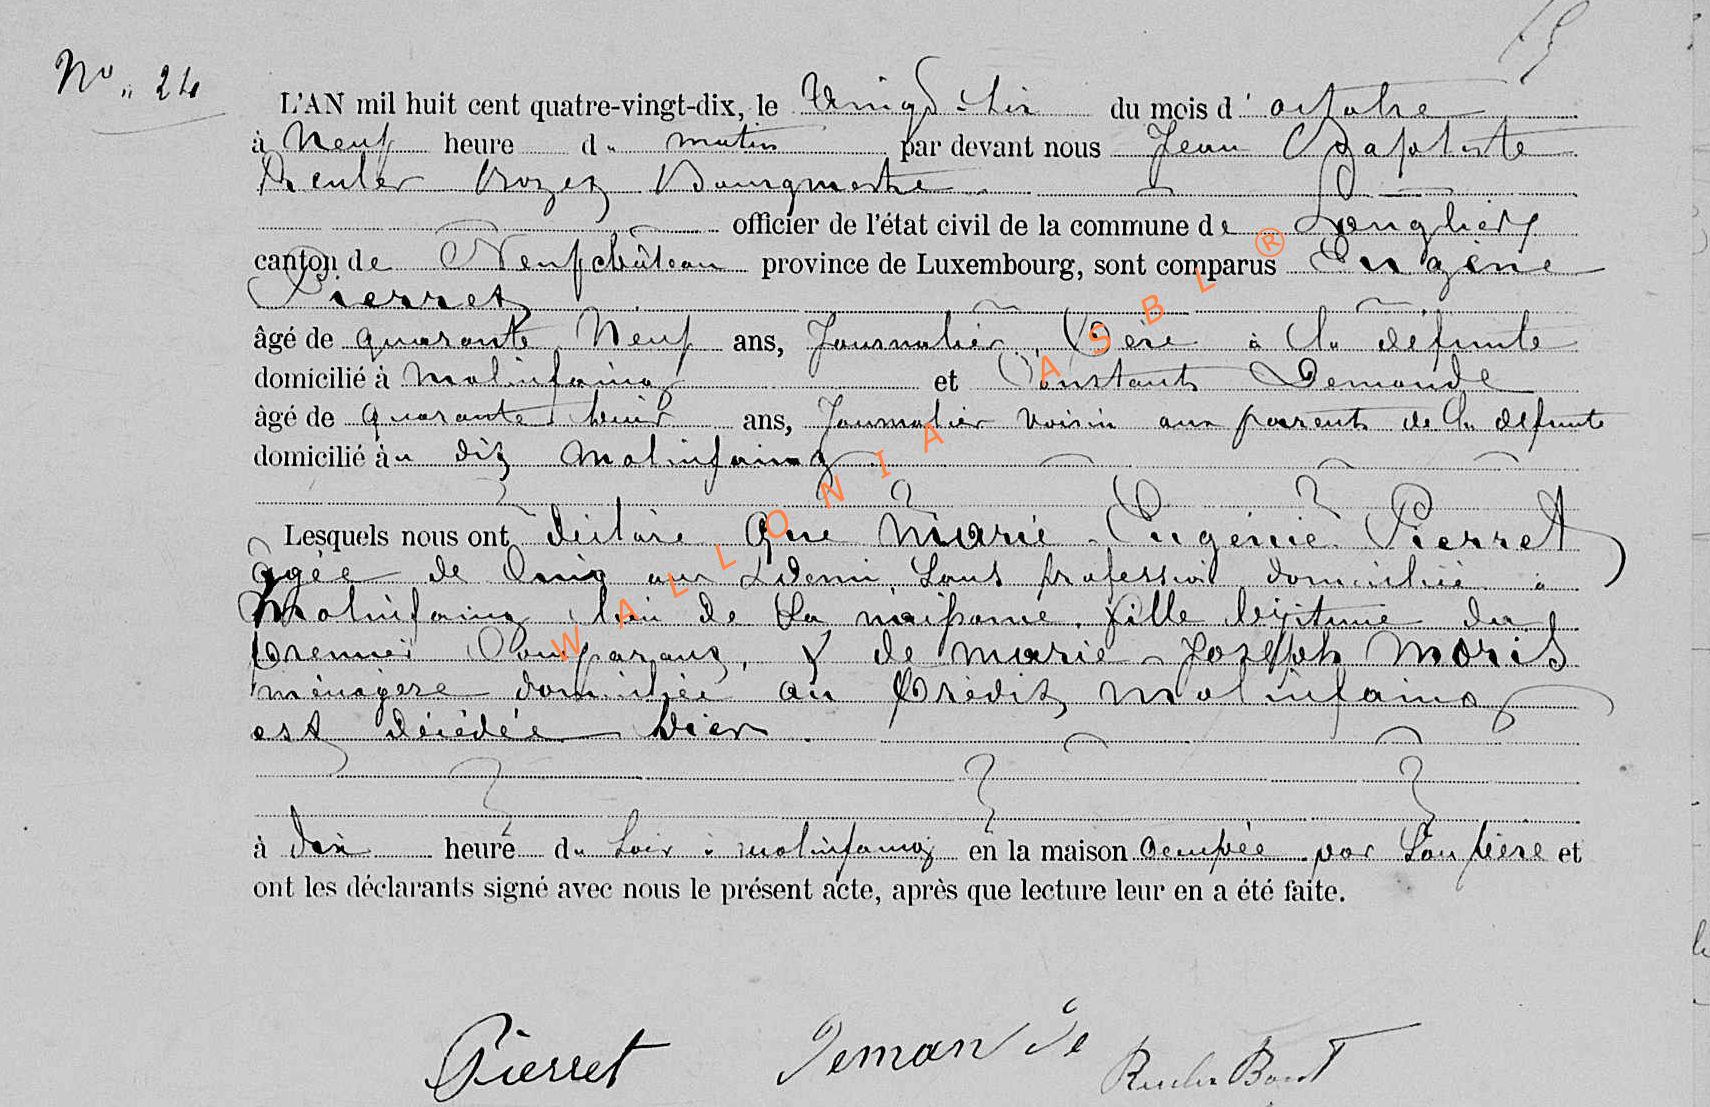 No. 24
L'AN mil huit cent quatre-vingt-dix, le Vingt-six du mois d'octobre
à Neuf heure du matin par devant nous Jean Baptiste
Bourgmestre
officier de l'état civil de la commune de Longlier
canton de Neufchâteau province de Luxembourg, sont comparus Eugène
Pierret
âgé de quarante Neuf ans, Journalier, Père à la défunte
domicilié à Molinfaing et Constant Demande
âgé de quarante huit ans, Journalier voisin aux parents de la défunte
domicilié au dit Molinfaing
Lesquels nous ont déclaré que Marie-Eugénie Pierret
âgée de Onze ans & demi, sans profession domiciliée à
Molinfaing lieu de sa naissance, fille légitime du
Premier Comparant, & de Marie-Joseph Moris
ménagère domiciliée au Prédit Molinfaing
est décédée hier
à dix heure du soir à Molinfaing en la maison occupée par son père et
ont les déclarants signé avec nous le présent acte, après que lecture leur en a été faite.
Pierret Demande
WALLONIA ASBL ®